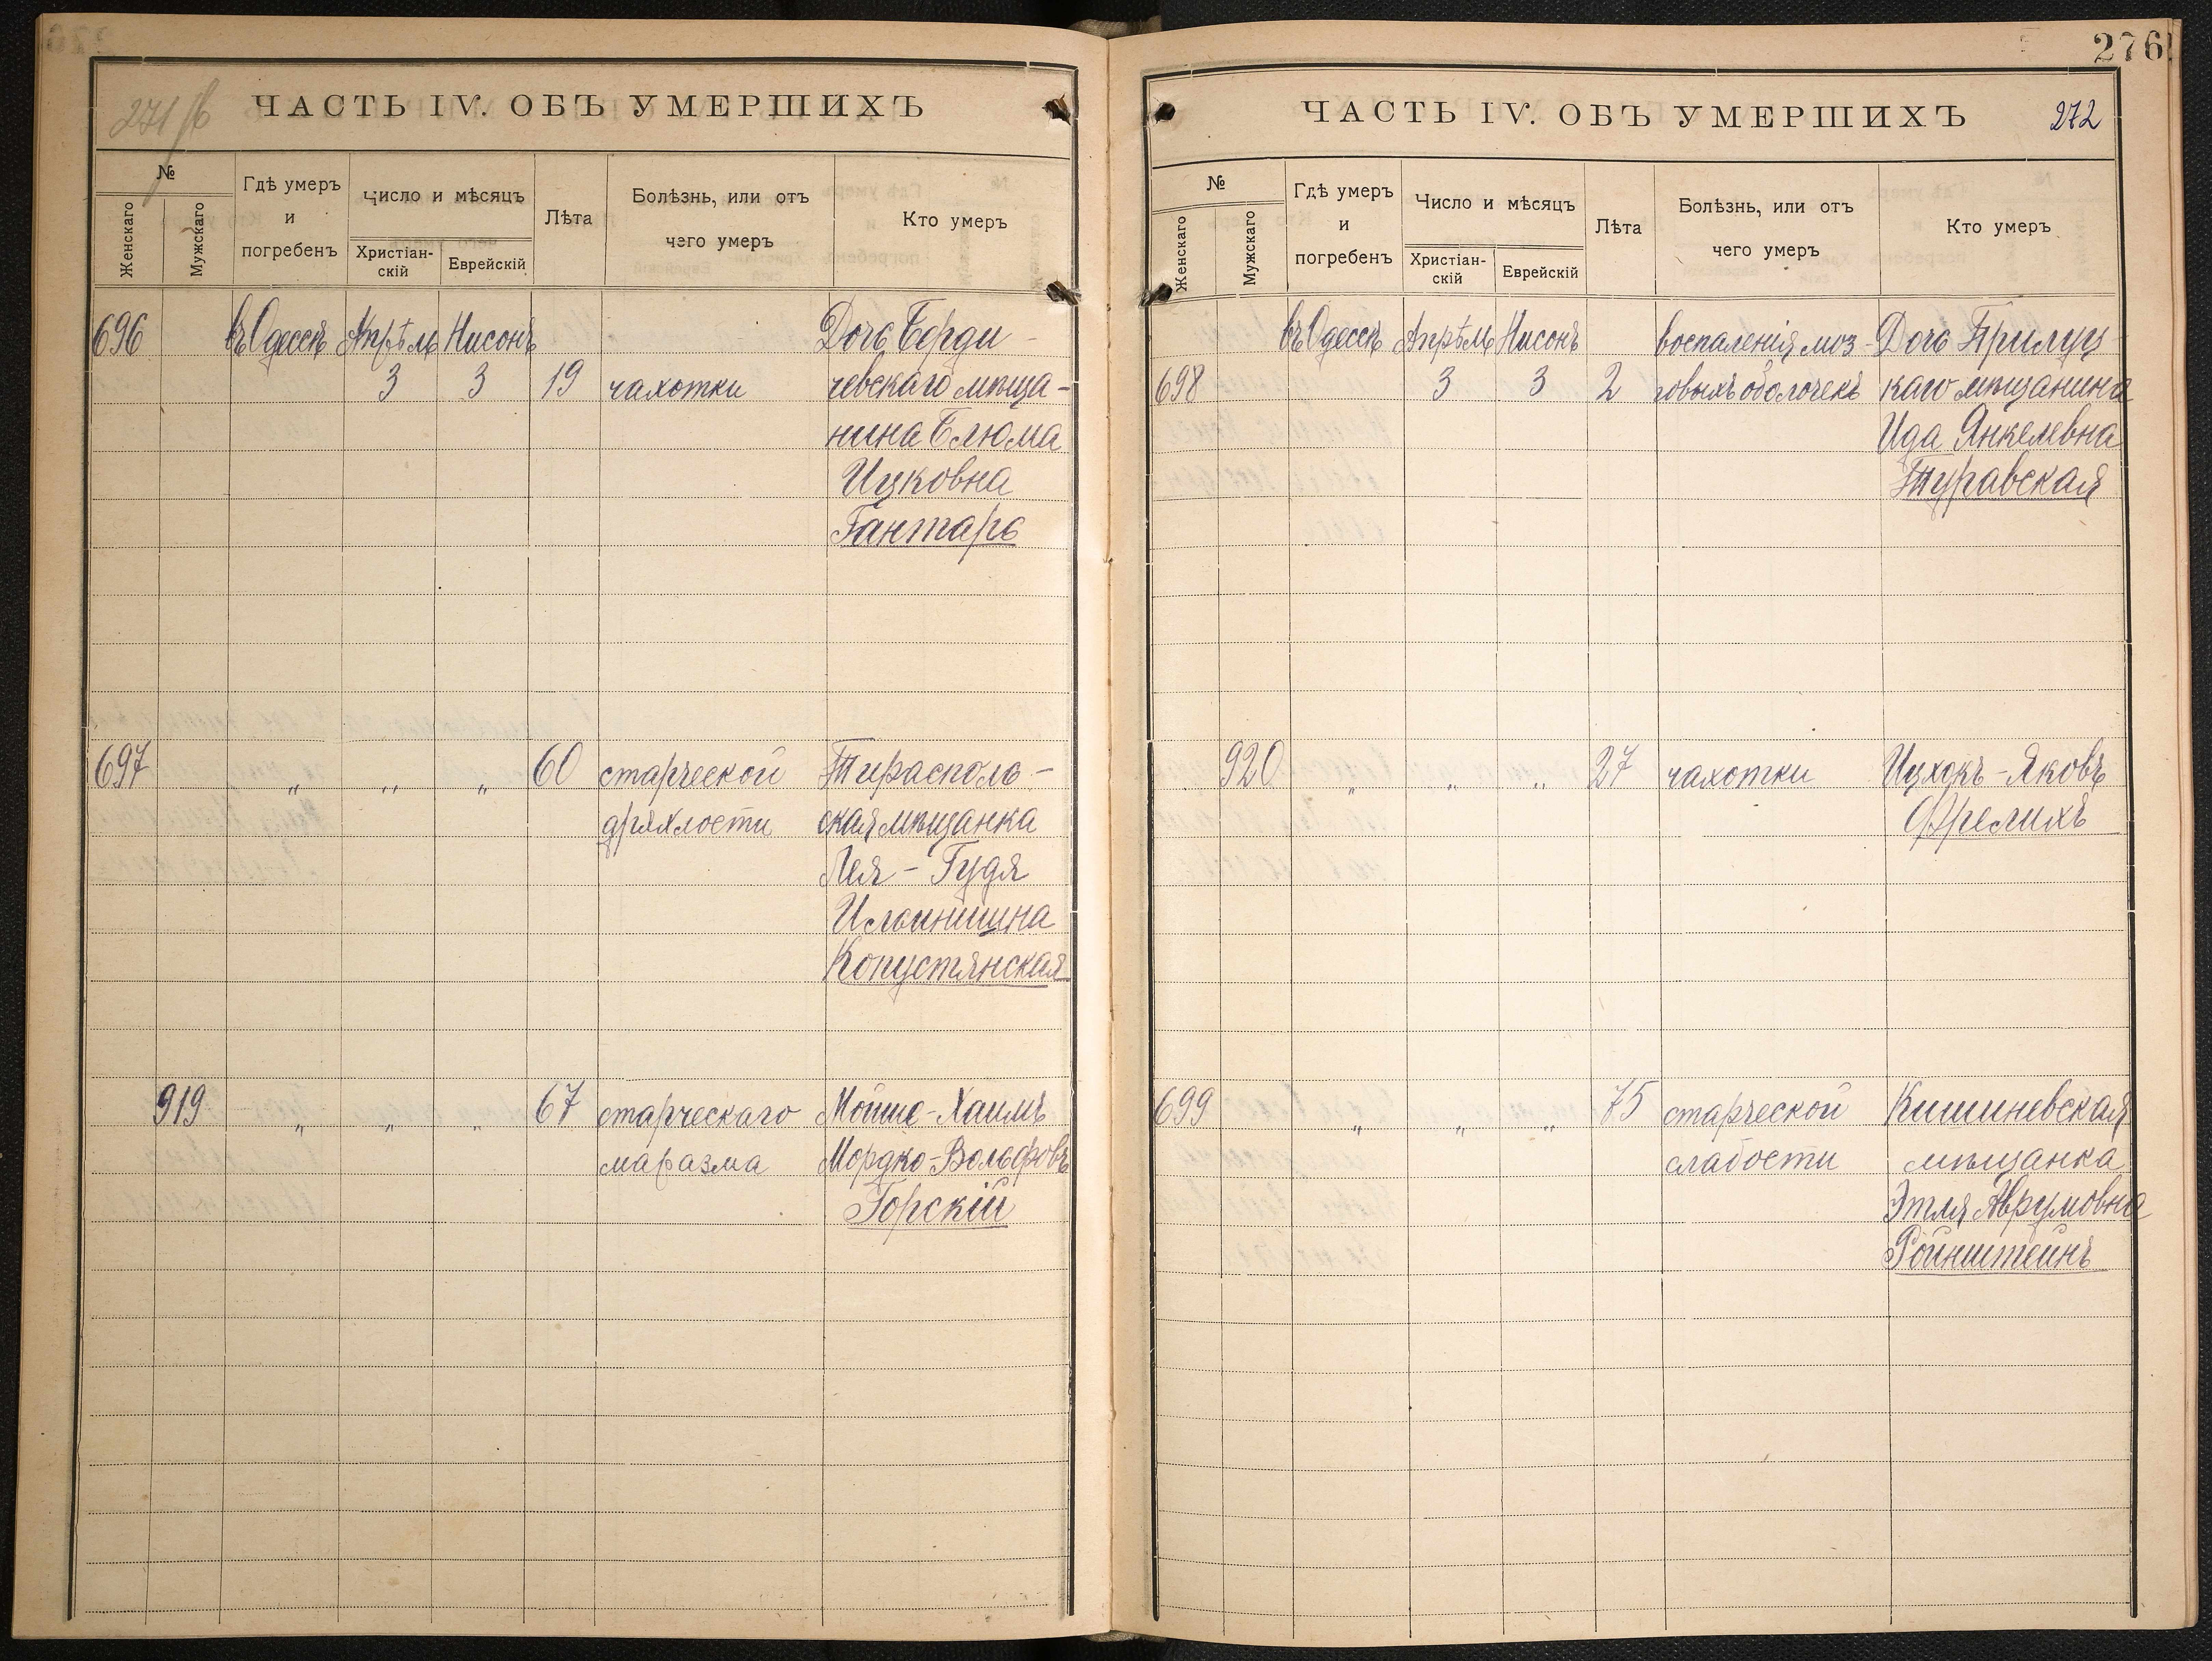 271 об
ЧАСТЬ IV. ОБЪ УМЕРШИХЪ
№
Женскаго
Мужскаго
Гдѣ умеръ
и
погребенъ
Число и мѣсяцъ
Христіан-
скій
Еврейскій
Лѣта
Болѣзнь, или отъ
чего умеръ
Кто умеръ
696 въ Одессѣ Апрѣль Нисонъ Дочь Берди-
3 3 19 чахотки чевскаго мѣща-
нина Блюма
Ицковна
Гантарь
697 " " " 60 старческой Тирасполь-
дряхлости ская мѣщанка
Лея-Гудя
Ильинишна
Копустянская
919 " " " 67 старческаго Мойше-Хаимъ
маразма Мордко-Вольфовъ
Горскій
276
ЧАСТЬ IV. ОБЪ УМЕРШИХЪ 272
№
Женскаго
Мужскаго
Гдѣ умеръ
и
погребенъ
Число и мѣсяцъ
Христіан-
скій
Еврейскій
Лѣта
Болѣзнь, или отъ
чего умеръ
Кто умеръ
въ Одессѣ Апрѣль Нисонъ воспаленія моз- Дочь Прилуц-
698 3 3 2 говыхъ оболочекъ каго мѣщанина
Ида Янкелевна
Туравская
920 " " " 27 чахотки Ицхокъ-Яковъ
Фрелихъ
699 " " " 75 старческой Кишиневская
слабости мѣщанка
Этля Аврумовна
Ройнштейнъ